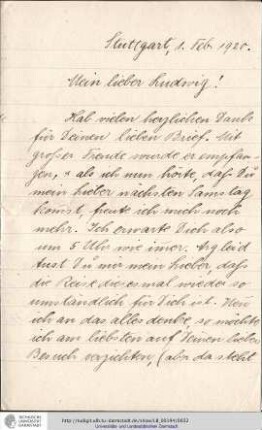 Stuttgart, 1. Feb. 1920.
Mein lieber Ludwig!
Hab vielen herzlichen Dank
für Deinen lieben Brief. Mit
großer Freude wurde er empfan-
gen, & als ich nun hörte, daß Du
mein lieber nächsten Samstag
kommst, freute ich mich noch
mehr. Ich erwarte Dich also
um 5 Uhr wie imer. Arg leid
tust Du mir mein lieber, daß
die Reise diesmal wieder so
umständlich für Dich ist. Wen
ich an das alles denke, so möchte
ich am liebsten auf Deinen lieben
Besuch verzichten, (aber da steht
http://tudigit.ulb.tu-darmstadt.de/show/
Universitäts- und Landesbibliothek Darmstadt